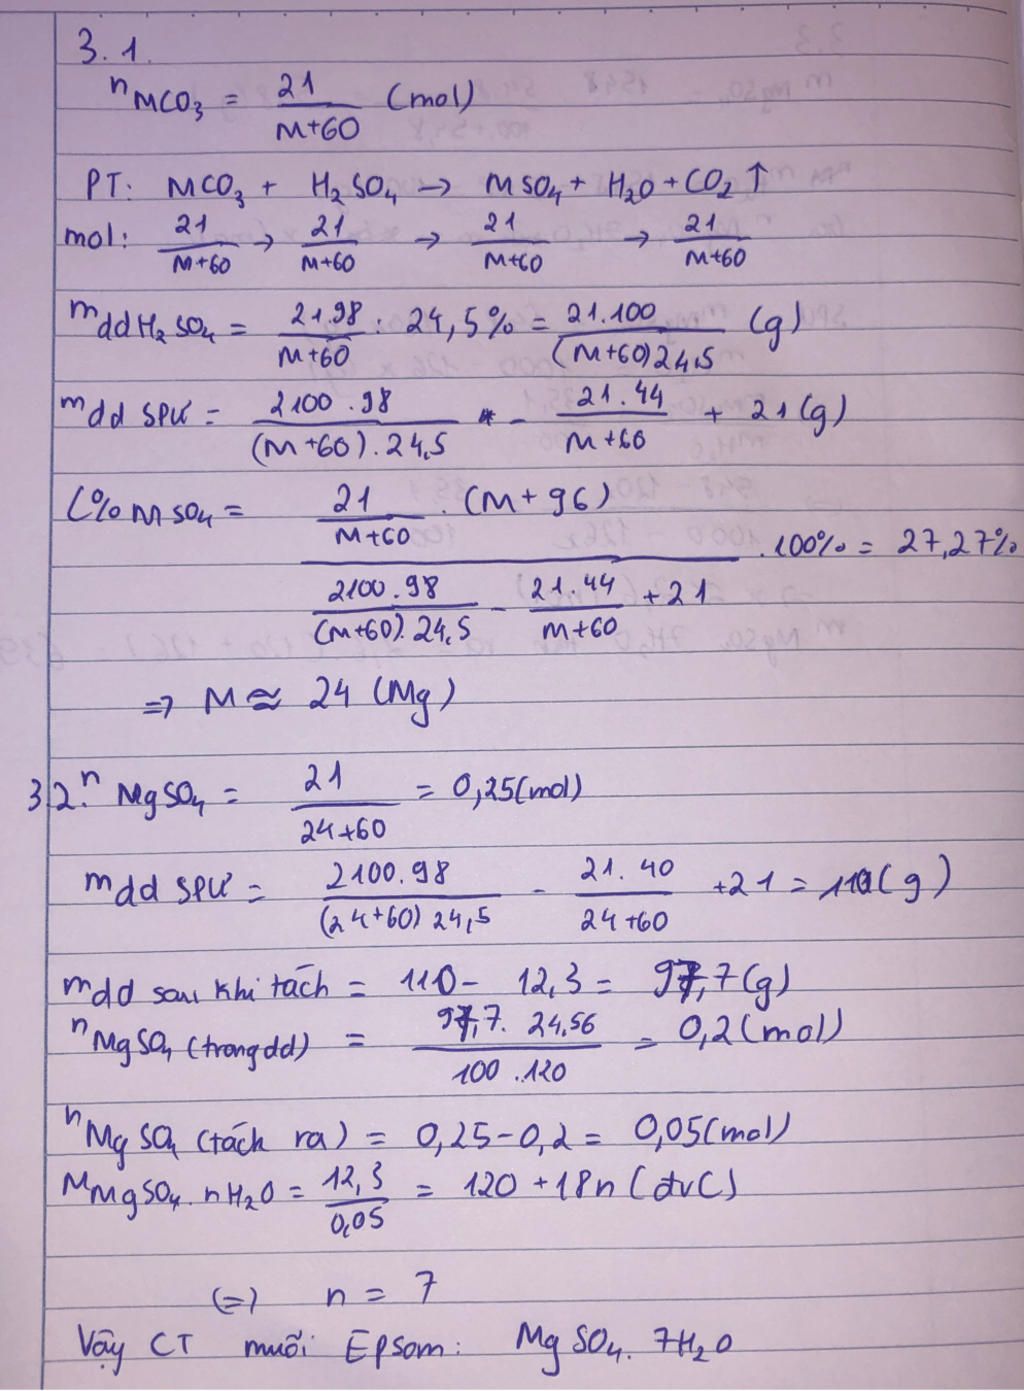 3.1.
nMCO3 = 21/(M+60) (mol)
PT: MCO3 + H2SO4 → MSO4 + H2O + CO2 ↑
mol: 21/(M+60) → 21/(M+60) → 21/(M+60) → 21/(M+60)
mddH2SO4 = 21.98/(M+60) : 24,5% = 21.100/((M+60)24,5) (g)
mdd SPƯ = 2100.98/((M+60).24,5) - 21.44/(M+60) + 21(g)
C%MSO4 = (21/(M+60) . (M+96))/(2100.98/((M+60).24,5) - 21.44/(M+60) + 21) .100% = 27,27%
=> M ≈ 24 (Mg)
3.2. nMgSO4 = 21/(24+60) = 0,25(mol)
mdd SPƯ = 2100.98/((24+60)24,5) - 21.40/(24+60) +21 = 110(g)
mdd sau khi tách = 110 - 12,3 = 97,7(g)
nMgSO4 (trong dd) = 97,7.24,56/(100.120) = 0,2(mol)
nMgSO4 (tách ra) = 0,25-0,2 = 0,05(mol)
MMgSO4.nH2O = 12,3/0,05 = 120+18n (đvC)
(=) n = 7
Vậy CT muối Epsom: MgSO4.7H2O